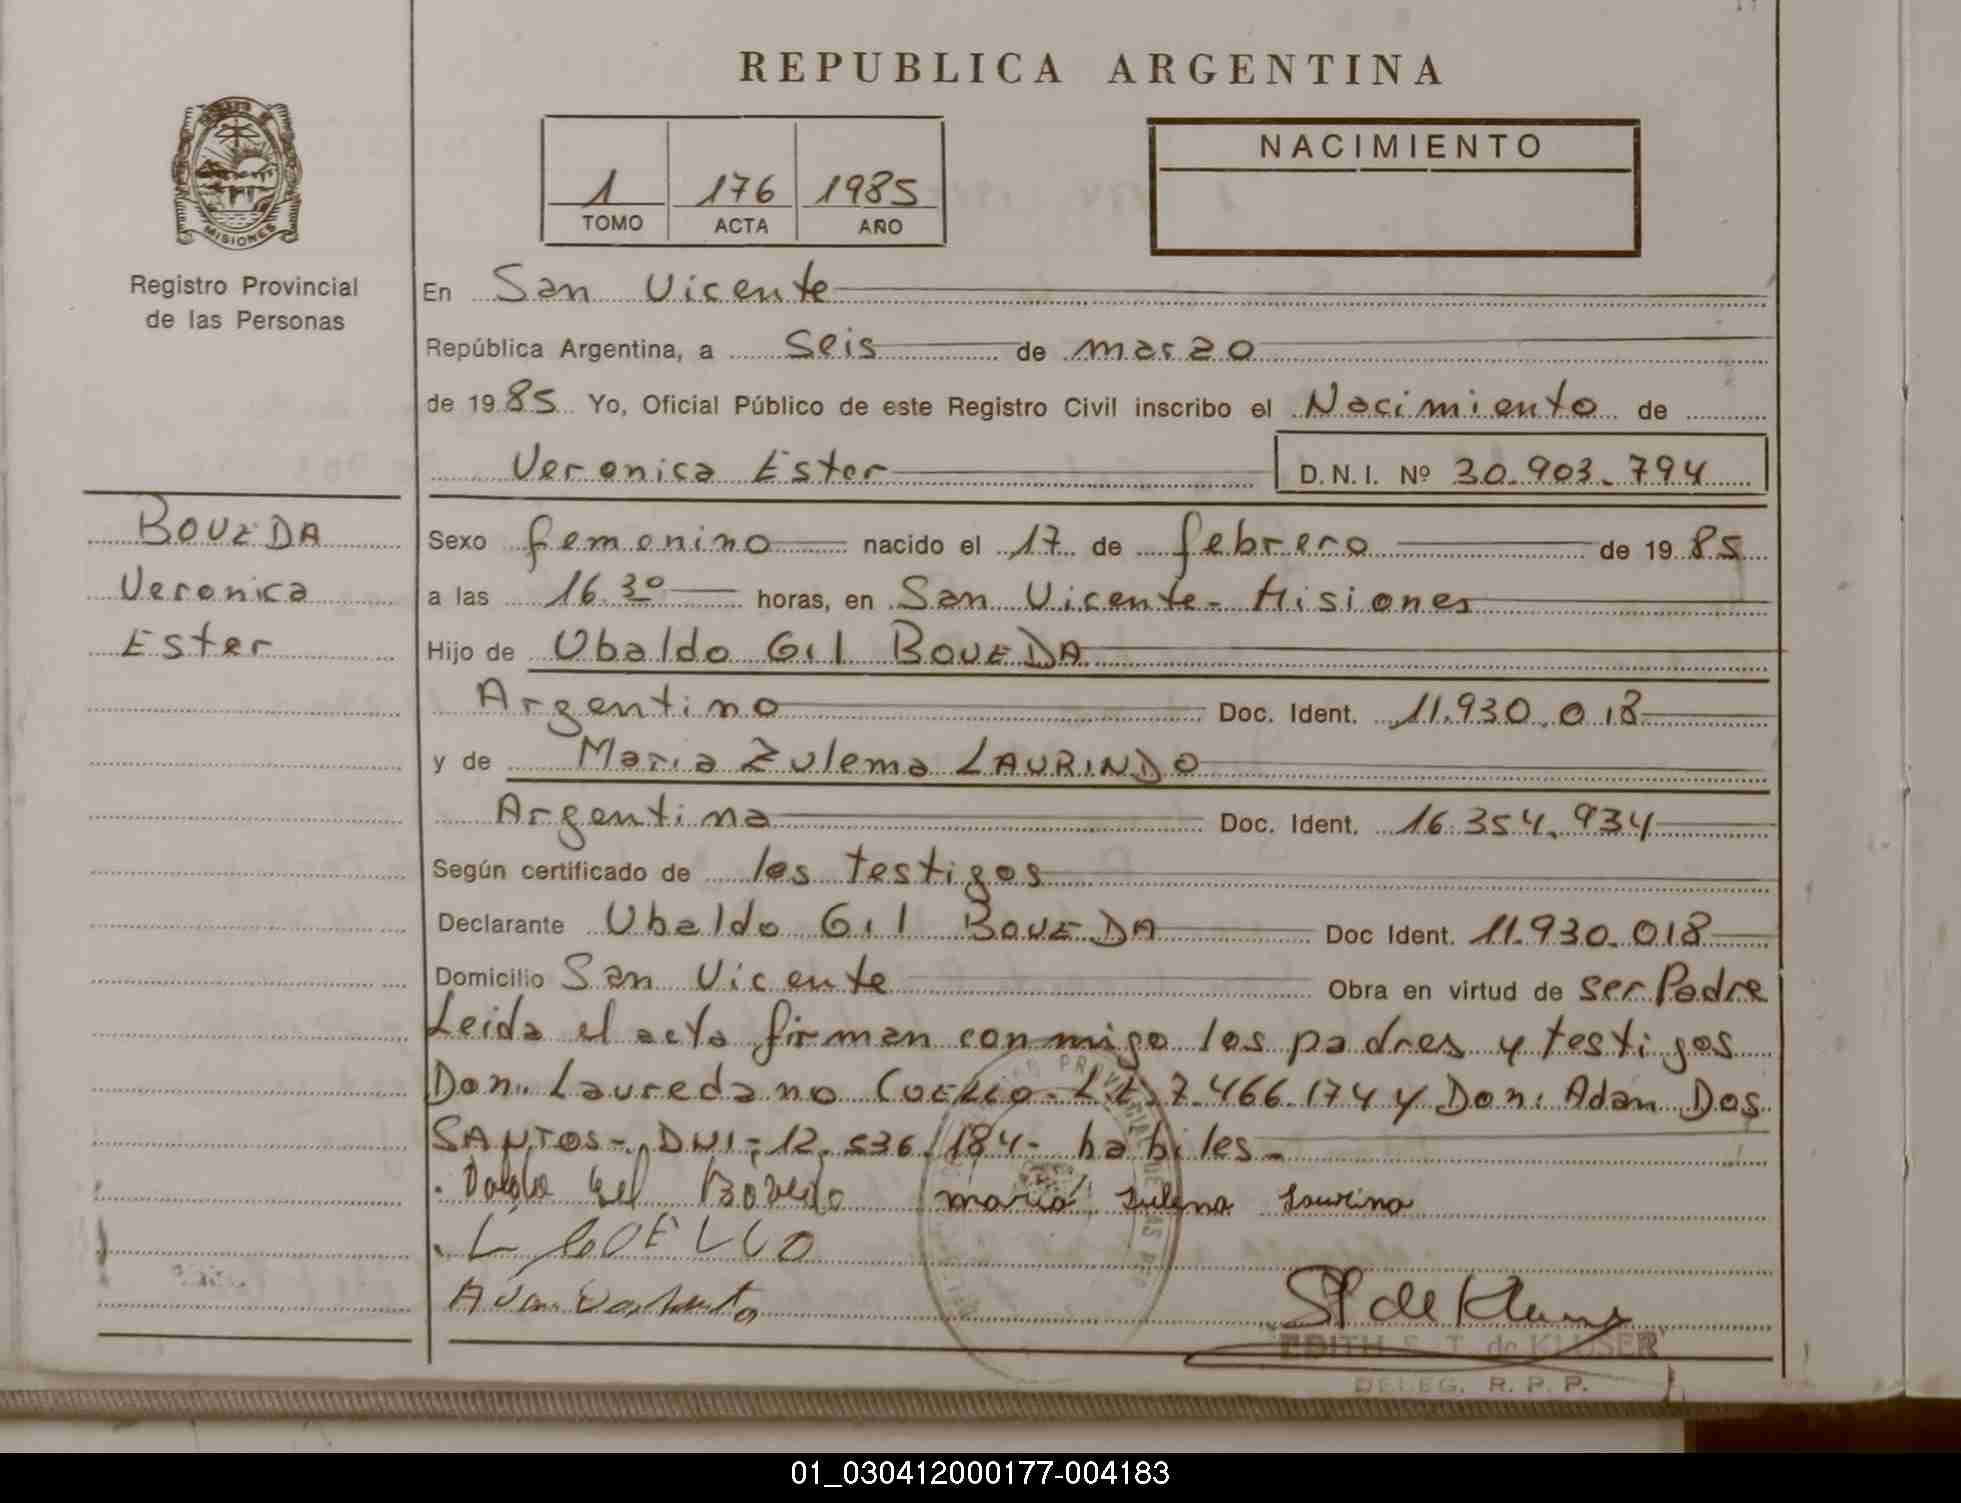 REPUBLICA ARGENTINA
MISIONES
Registro Provincial
de las Personas
1 176 1985
TOMO ACTA AÑO
NACIMIENTO
En San Vicente
República Argentina, a seis de marzo
de 1985 Yo, Oficial Público de este Registro Civil inscribo el Nacimiento de
Veronica Ester D.N.I. Nº 30.903.794
BOVEDA
Veronica
Ester
Sexo femenino nacido el 17 de febrero de 1985
a las 16.30 horas, en San Vicente - Misiones
Hijo de Ubaldo Gil BOVEDA
Argentino Doc. Ident. 11.930.018
y de Maria Zulema LAURINDO
Argentina Doc. Ident. 16.354.934
Según certificado de los testigos
Declarante Ubaldo Gil BOVEDA Doc Ident. 11.930.018
Domicilio San Vicente Obra en virtud de ser Padre
Leida el acta firman conmigo los padres y testigos
Don: Lauredano COELLO - L.E. 7.466.174 y Don: Adan Dos
SANTOS - DNI - 12.536.184 - habiles -
maria Sulema Laurino
L COELLO
EDITH S. T. de KLUSER
DELEG. R. P. P.
01_030412000177-004183